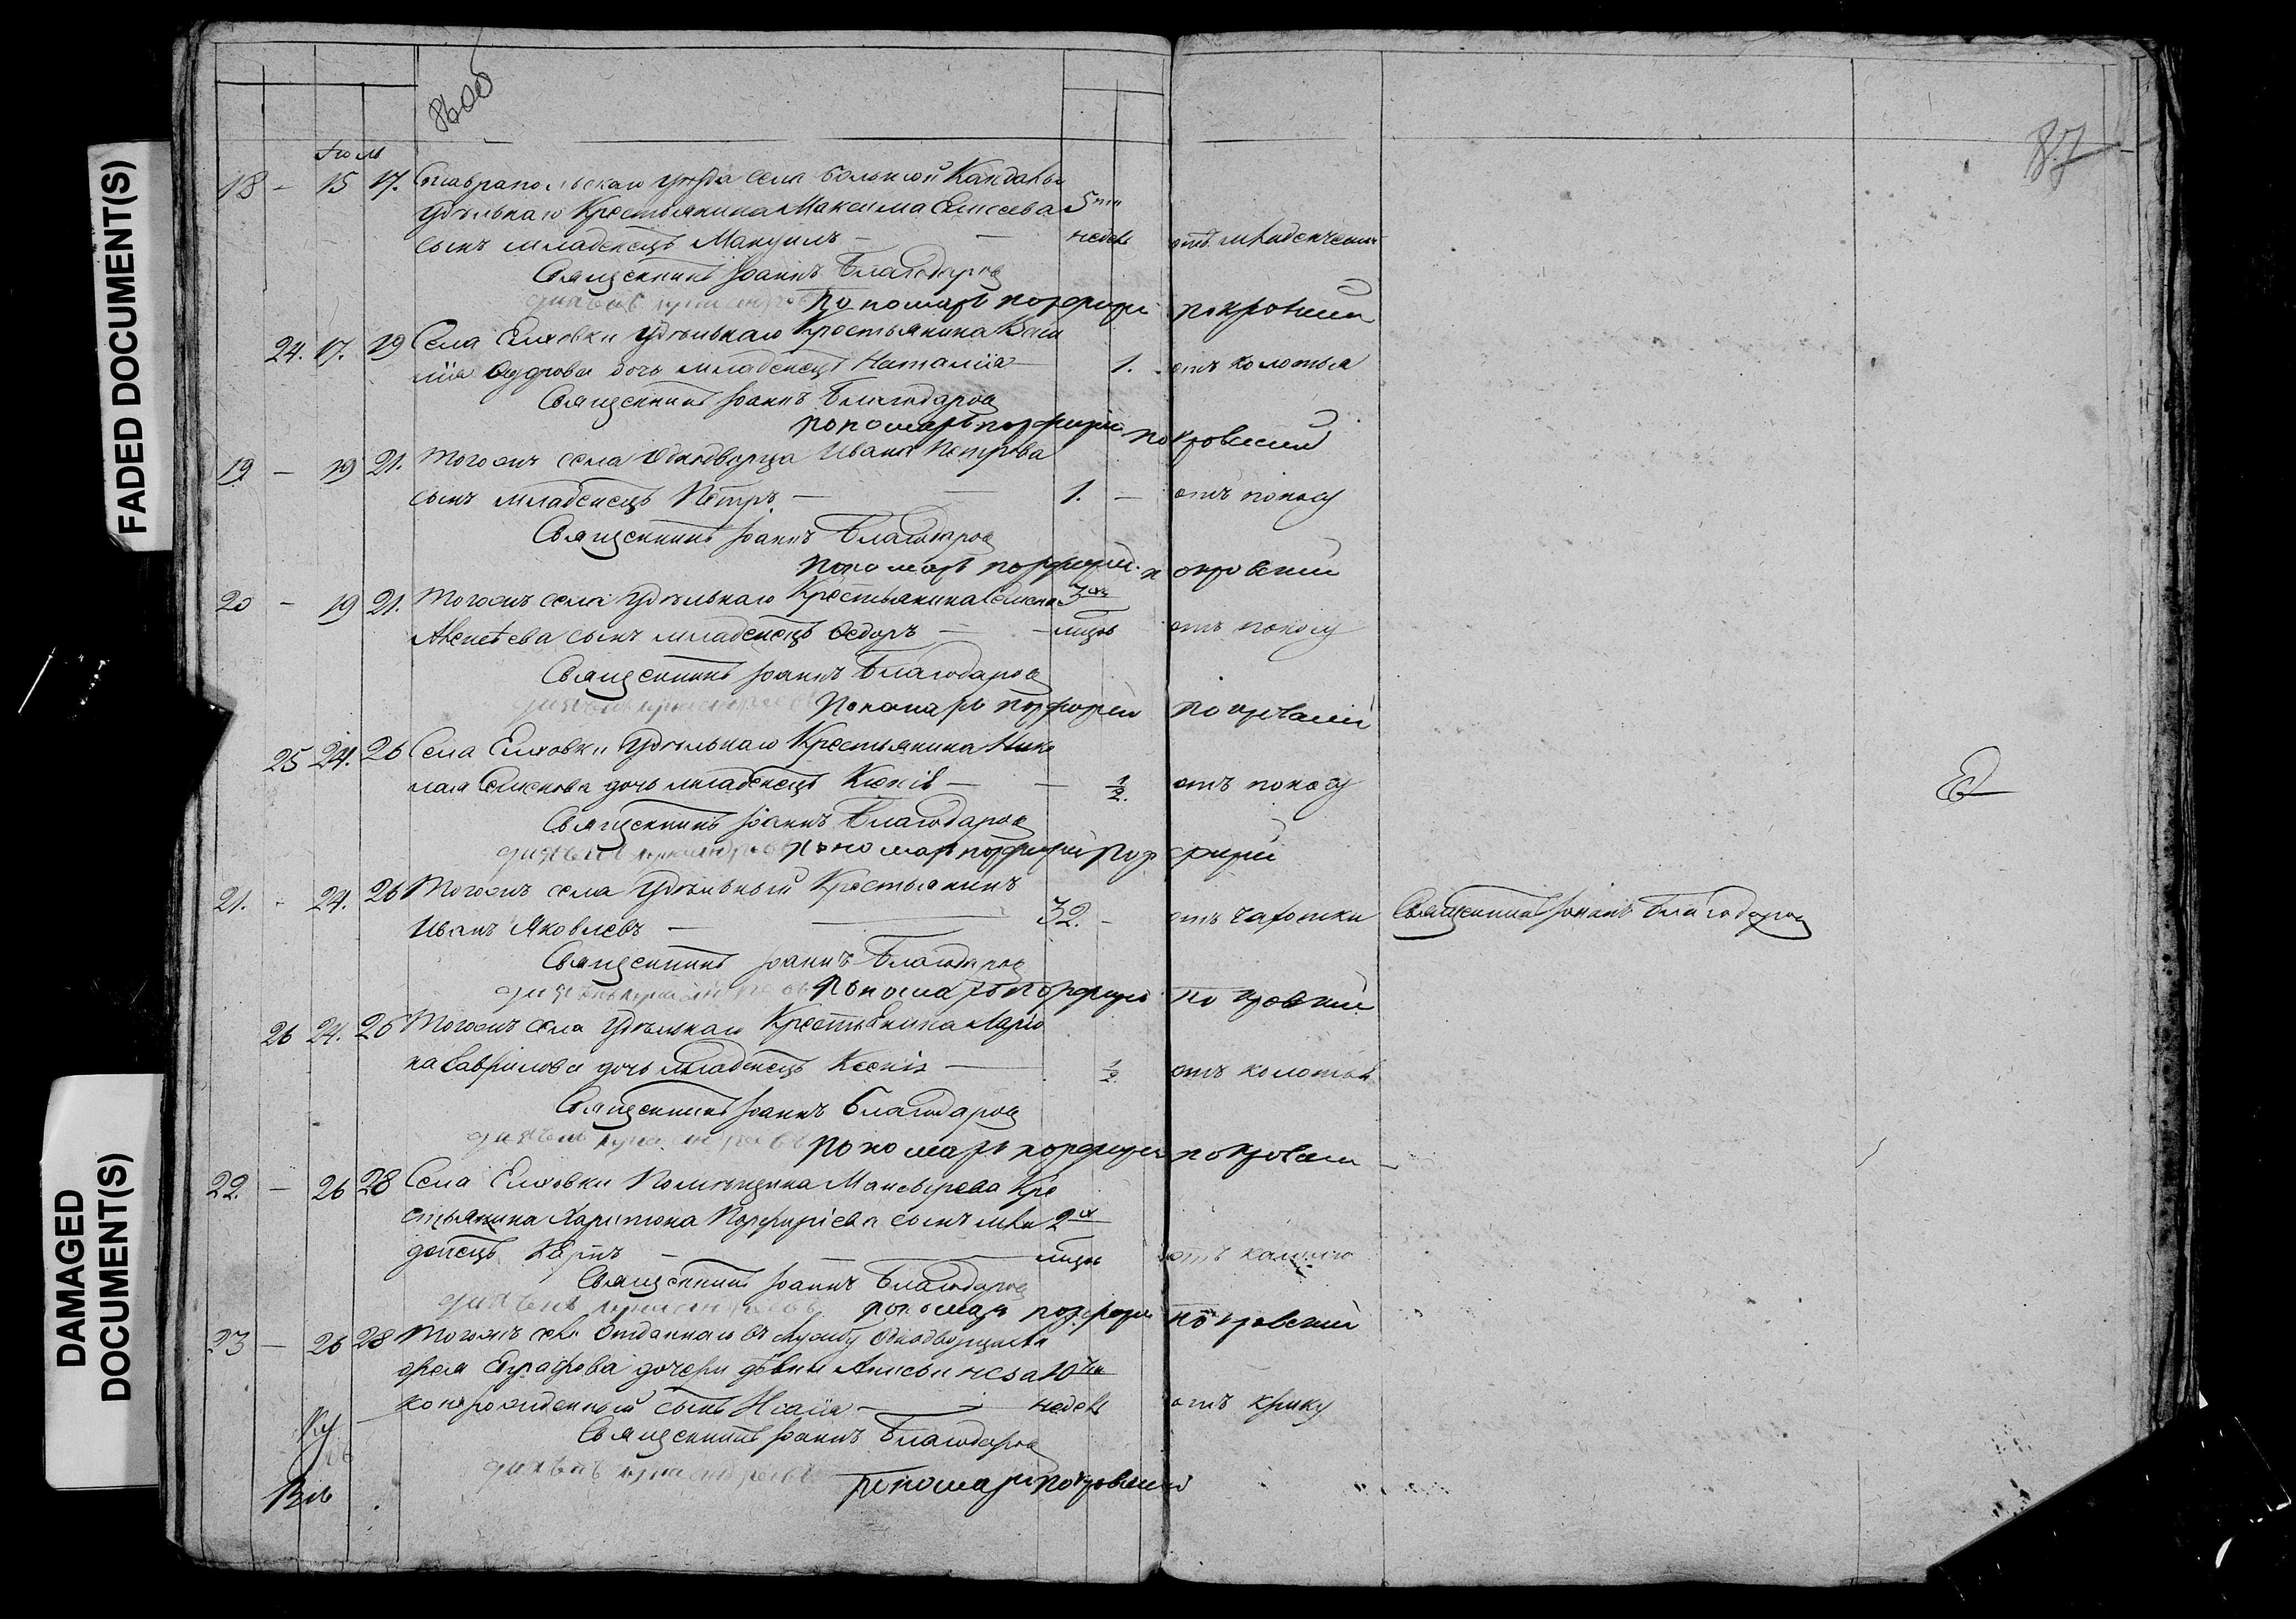 87
Июль
18 - 15 17. Ставропольскаго уезда села Большой Кандалы
Удѣльнаго Крестьянина Максима Елисеева 5ти
сынъ младенецъ Мануилъ - - недель отъ младенческой
Священникъ Іоаннъ Благодаров
Пономарь порфирий покровский
24. 17. 19 Села Елховки Удѣльнаго Крестьянина Васи
лія Ѳедрова дочь младенецъ Наталія 1. отъ колотья
Священникъ Іоаннъ Благодаров
пономарь порфирий покровский
19 - 19 21. Тогожъ села Однодворца Ивана Петрова
сынъ младенецъ Петръ - - 1. - отъ поносу
Священникъ Іоаннъ Благодаров
пономарь порфирий покровский
20 - 19 21. Тогожъ села Удѣльнаго Крестьянина Семена 3хъ
сынъ младенецъ Ѳедоръ - - мцов отъ поносу
Священникъ Іоаннъ Благодаров
Пономарь порфирей покровский
25 24. 26 Села Елховки Удѣльнаго Крестьянина Нико
лая Семенова дочь младенецъ Ксенія - - 1/2. отъ поносу
Священникъ Іоаннъ Благодаров
пономарь порфирий порфирий
21. - 24. 26 Тогожъ села Удѣльный Крестьянинъ
Иванъ Яковлевъ - - 32. - отъ чахотки Священникъ Іоаннъ Благодаров
Священникъ Іоаннъ Благодаров
Пономарь порфирий покровский
26 24. 26 Тогожъ села Удѣльнаго Крестьянина Ларіо
на Гаврилова дочь младенецъ Ксенія - 1/2. отъ колотья
Священникъ Іоаннъ Благодаров
пономарь порфирий покровский
22. - 26 28 Села Елховки Помѣщика Мансырева Кре
стьянина Харитона Порфиріева сынъ мла 2х
денецъ - - мцов отъ
Священникъ Іоаннъ Благодаров
пономарь порфирий покровский
23 - 26 28 Тогожъ села Отданнаго въ службу Однодворца
дочери дѣвки Анисьи неза 10ти
коннорожденный сынъ - недель отъ крику
Священникъ Іоаннъ Благодаров
пономарь покровский
FADED DOCUMENT(S)
DAMAGED
DOCUMENT(S)